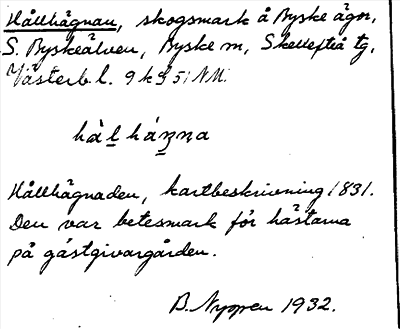 Hållhägnan, skogsmark å Byske ägor,
S. Byskeälven, Byske sn, Skellefteå tg,
Västerb. l. 9 k S 5; NM.
hàl̲hán̲na
Hållhägnaden, kartbeskrivning 1831.
Den var betesmark för hästarna
på gästgivargården.
B. Nyppen 1932.